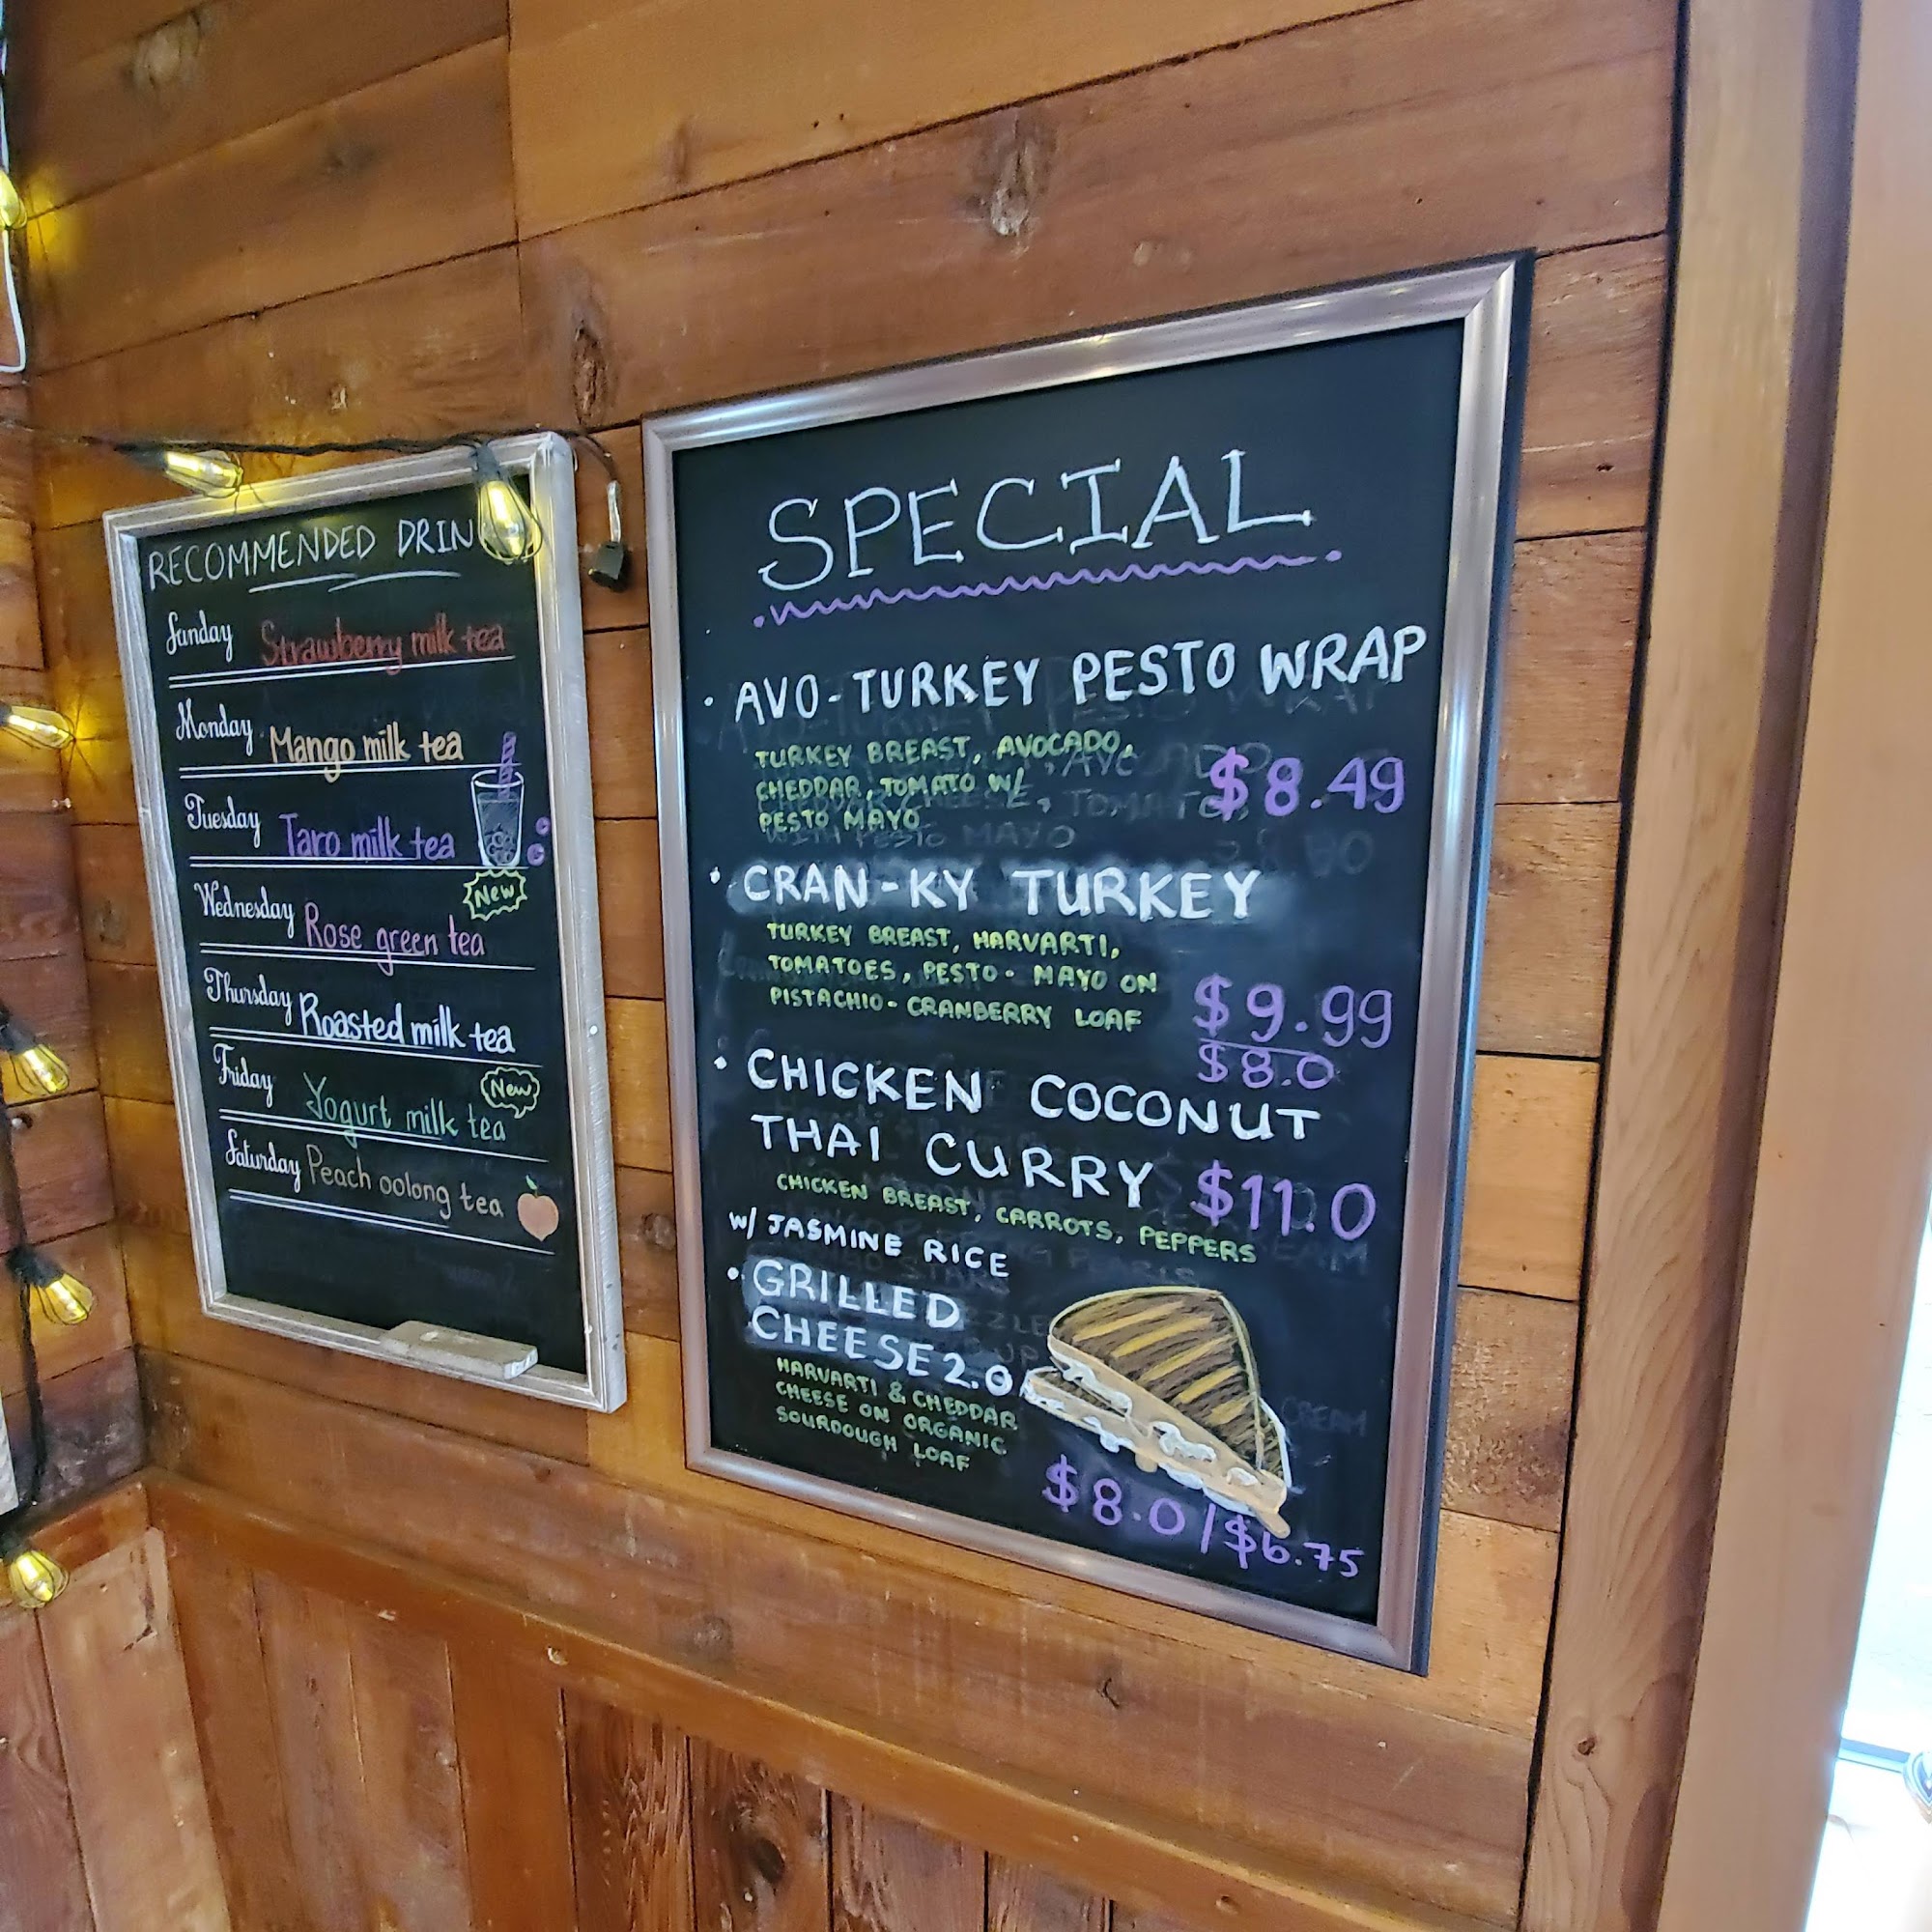 RECOMMENDED DRIN
Sunday Strawberry milk tea
Monday Mango milk tea
Tuesday Taro milk tea
New
Wednesday Rose green tea
Thursday Roasted milk tea
New
Friday Yogurt milk tea
Saturday Peach oolong tea
SPECIAL
· AVO-TURKEY PESTO WRAP
TURKEY BREAST, AVOCADO,
CHEDDAR, TOMATO W/ $8.49
PESTO MAYO
· CRAN-KY TURKEY
TURKEY BREAST, HARVARTI,
TOMATOES, PESTO- MAYO ON
PISTACHIO-CRANBERRY LOAF $9.99
$8.0
· CHICKEN COCONUT
THAI CURRY $11.0
CHICKEN BREAST, CARROTS, PEPPERS
W/ JASMINE RICE
· GRILLED
CHEESE 2.0
HARVARTI & CHEDDAR
CHEESE ON ORGANIC
SOURDOUGH LOAF
$8.0/$6.75